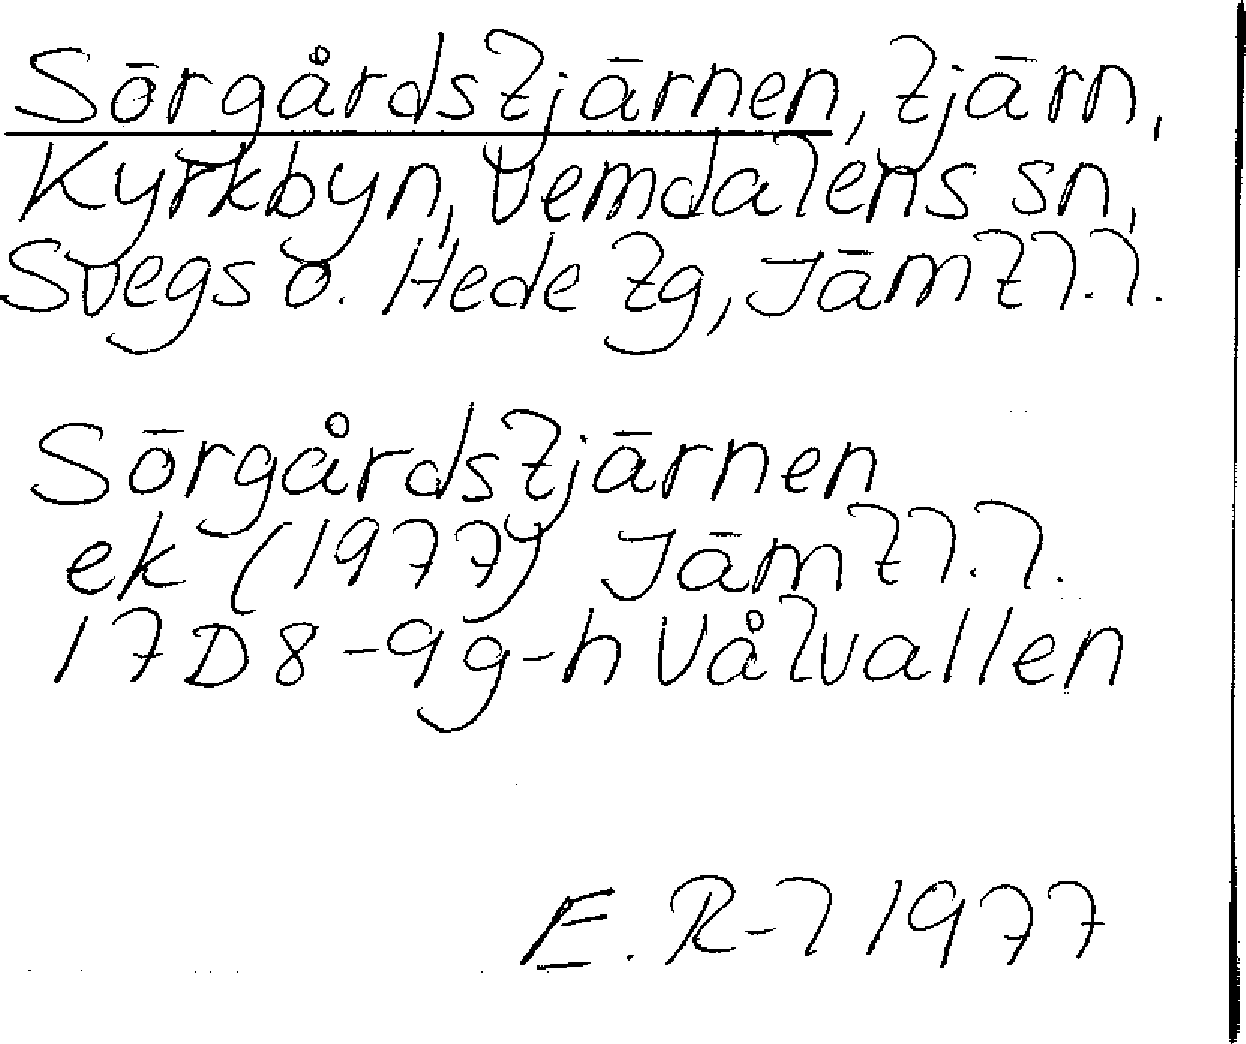 Sörgårdstjärnen, tjärn,
Kyrkbyn, Vemdalens sn,
Svegs o. Hede tg, Jämtl.l.
Sörgårdstjärnen
ek (1977) Jämtl.l.
17D8-9g-h Vålvallen
E. R-l 1977